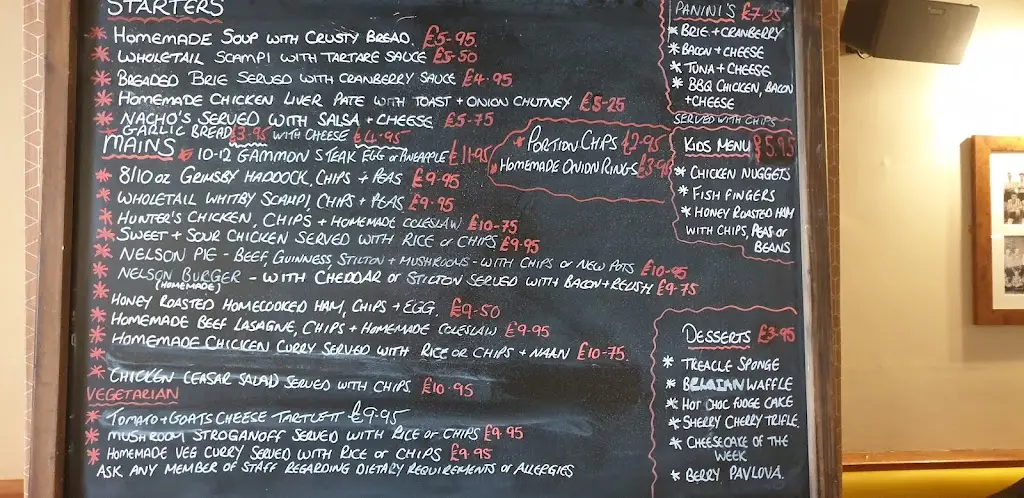 STARTERS
* HOMEMADE SOUP WITH CRUSTY BREAD. £5-95
* WHOLETAIL SCAMPI WITH TARTARE SAUCE £5-50
* BREADED BRIE SERVED WITH CRANBERRY SAUCE £4.95
* HOMEMADE CHICKEN LIVER PATE WITH TOAST + ONION CHUTNEY £5-25
* NACHO'S SERVED WITH SALSA + CHEESE £5-75
* GARLIC BREAD £3.95 WITH CHEESE £4.95
* PORTION CHIPS £2-95
* HOMEMADE ONION RINGS £3-95
MAINS
* 10-12 GAMMON STEAK EGG or PINEAPPLE £11.95
* 8/10 oz GRIMSBY HADDOCK, CHIPS + PEAS £9.95
* WHOLETAIL WHITBY SCAMPI, CHIPS + PEAS £9.95
* HUNTER'S CHICKEN, CHIPS + HOMEMADE COLESLAW £10-75
* SWEET + SOUR CHICKEN SERVED WITH RICE or CHIPS £9.95
* NELSON PIE - BEEF, GUINNESS, STILTON + MUSHROOMS - WITH CHIPS or NEW POTS £10-95
* NELSON BURGER - WITH CHEDDAR or STILTON SERVED WITH BACON + RELISH £9-75
(HOMEMADE)
* HONEY ROASTED HOMECOOKED HAM, CHIPS + EGG. £9-50
* HOMEMADE BEEF LASAGNE, CHIPS + HOMEMADE COLESLAW £9.95
* HOMEMADE CHICKEN CURRY SERVED WITH RICE OR CHIPS + NAAN £10-75
*
* CHICKEN CEASAR SALAD SERVED WITH CHIPS £10.95
VEGETARIAN
* TOMATO + GOATS CHEESE TARTLETT £9.95
* MUSHROOM STROGANOFF SERVED WITH RICE or CHIPS £9.95
* HOMEMADE VEG CURRY SERVED WITH RICE or CHIPS £9.95
ASK ANY MEMBER OF STAFF REGARDING DIETARY REQUIREMENTS or ALLERGIES
PANINI'S £7-25
* BRIE + CRANBERRY
* BACON + CHEESE
* TUNA + CHEESE
* BBQ CHICKEN, BACON
+ CHEESE
SERVED WITH CHIPS
KIDS MENU £5.95
* CHICKEN NUGGETS
* FISH FINGERS
* HONEY ROASTED HAM
WITH CHIPS, PEAS or
BEANS
DESSERTS £3.95
* TREACLE SPONGE
* BELGIAN WAFFLE
* HOT CHOC FUDGE CAKE
* SHERRY CHERRY TRIFLE
* CHEESECAKE OF THE
WEEK
* BERRY PAVLOVA.